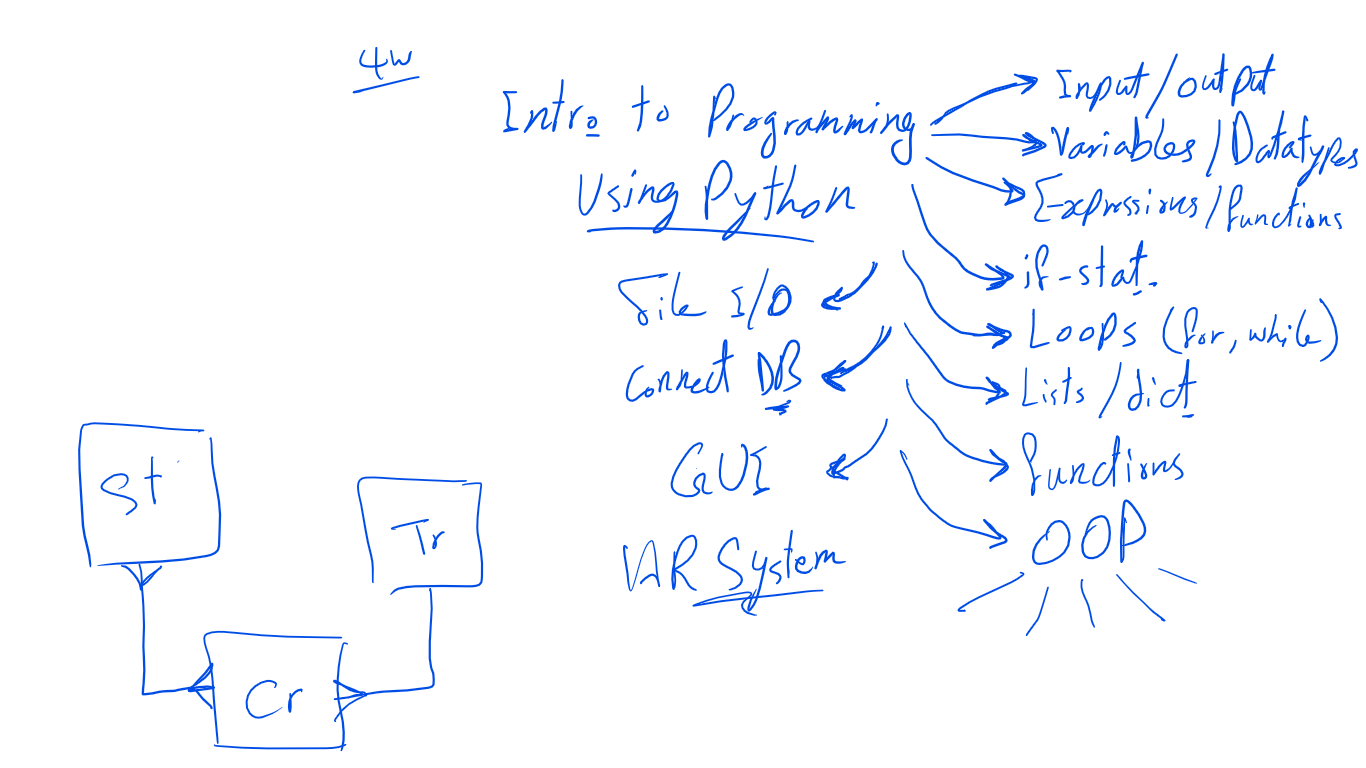 4w
Intro to Programming
Using Python
Input/output
Variables/Datatypes
Expressions/functions
if-stat.
Loops (for, while)
Lists/dict
functions
OOP
File I/O
Connect DB
GUI
System
St
Tr
Cr